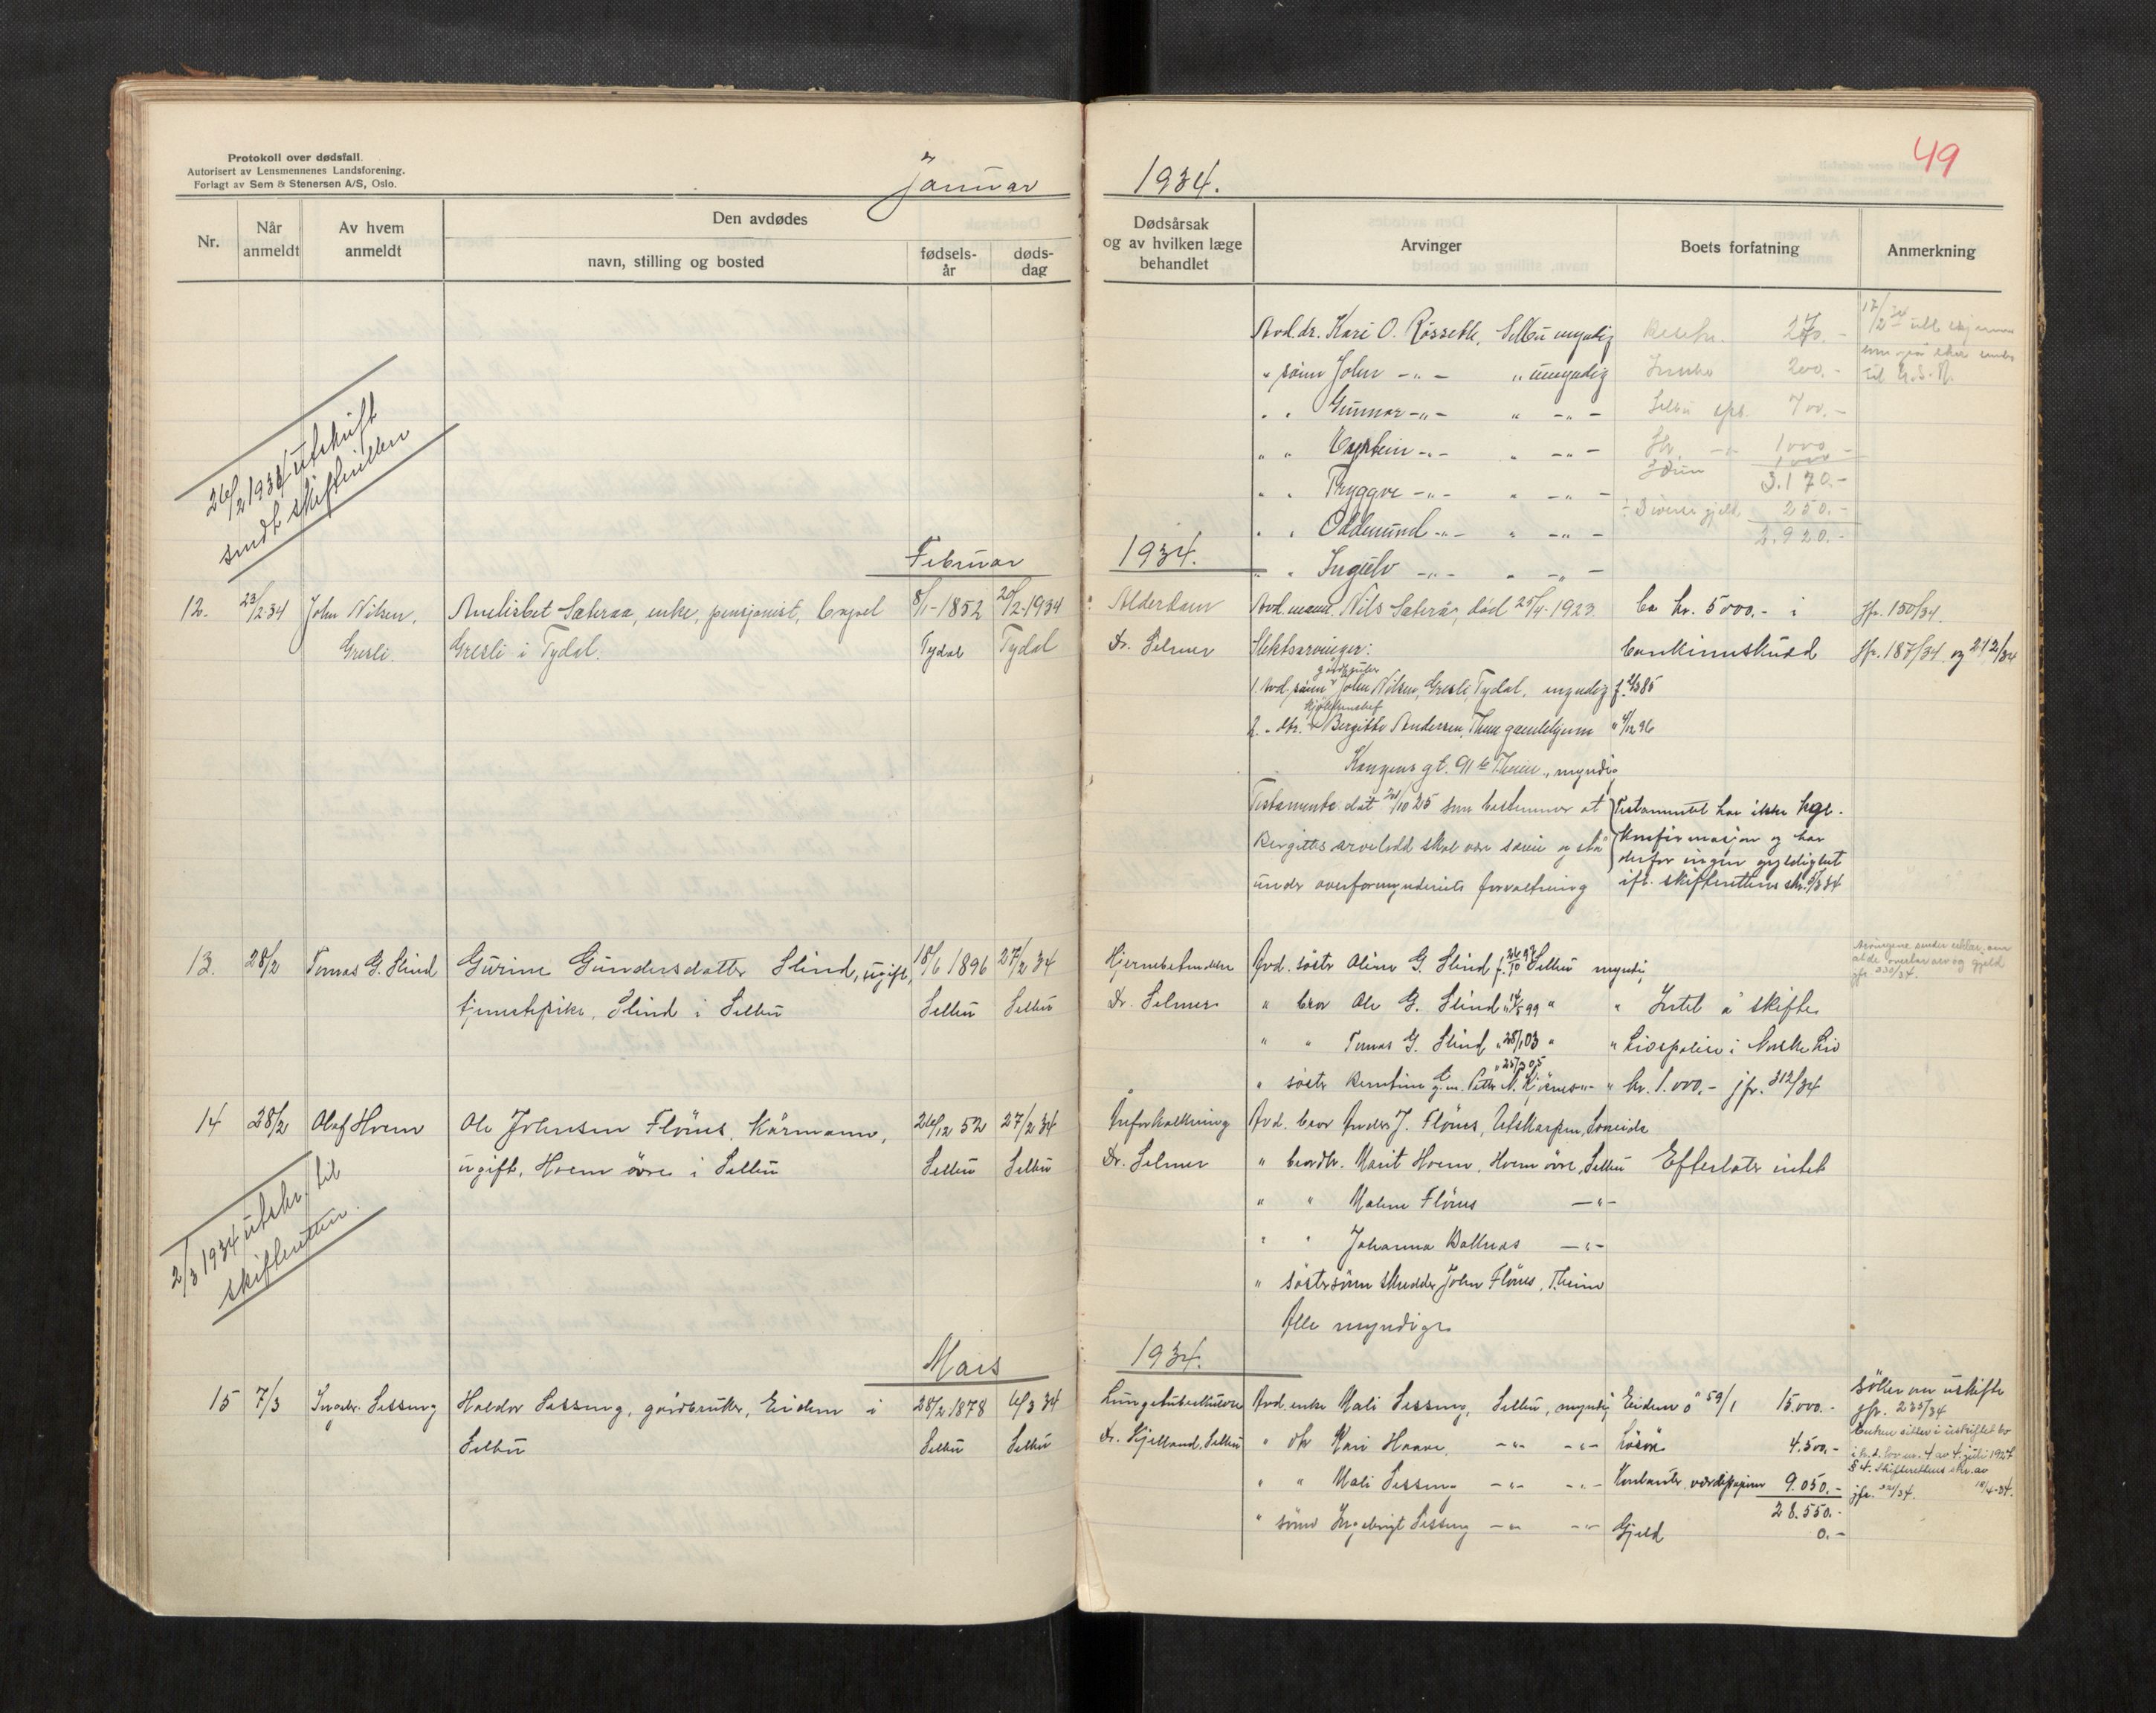 Protokoll over dødsfall.
Autorisert av Lensmennenes Landsforening.
Forlagt av Sem & Stenersen A/S, Oslo.
Januar
1934.
49
Nr.
Når anmeldt
Av hvem anmeldt
Den avdødes
navn, stilling og bosted
fødselsår
dødsdag
Dødsårsak og av hvilken læge behandlet
Arvinger
Boets forfatning
Anmerkning
Avd. dr. Kari O. Rosseth, Selbu myndig
270.-
" sønn John -"- " umyndig
200.-
" " Gunnar -"- " -"-
Selbu spb. 700.-
" " -"- " -"-
1000.-
1000
" " Tryggve -"- " -"-
3.170.-
" " Oddmund -"- " -"-
÷ Diverse gjeld 250.-
2.920.-
" " Ingulv -"- " -"-
26/2 1934 utskrift
sendt skifteretten
Februar
1934.
12. 23/2 34 John Nilsen, Anlisbet Sæteraa, enke, pensjonist, 8/1-1852 20/2-1934 Alderdom Avd. mann Nils Sæterås, død 25/4-1923. Ca kr. 5000.- i jfr. 150/34.
Gresli. Gresli i Tydal. Tydal Tydal Dr. Selmer Slektsarvinger: bankinnskudd jfr. 187/34 og 212/34
gårdbruker
1. Avd. sønn John Nilsen, Gresli, Tydal, myndig f. 85
2. " dtr. Bergitte Andersen, Thms gamlehjem " 4/12 96
Kongens gt. 91 Theim, myndig
Testamente dat 10 25 som bestemmer at Testamentet har ikke kgl.
Bergittes arvelodd skal være særeie og stå konfirmasjon og har
derfor ingen gyldighet
under overformynderiets forvaltning ifl. skifterettens skr. 5/3 34
13. 28/2 Tomas G. Slind Gurine Gundersdatter Slind, ugift, 18/6 1896 27/2 34 Hjernebetendelse Avd. søster Oline G. Slind f. 26/10 93 Selbu myndig
Arvingene sender erklær. om
at de overtar arv og gjeld
jfr. 330/34.
tjenestepike, Slind i Selbu Selbu Selbu Dr. Selmer " bror Ole G. Slind " 14/5 99 " " Intet å skifte
" " Tomas G. Slind " 28/1 03 " " Livspolise i Norske Liv
" søster Berntine g.m. Petter N. Kjøsnes " 25/2 05 -"- " kr. 1.000.- jfr. 312/34
14 28/2 Olaf Hoem Ole Johnsen Flønes, kårmann, 26/12 52 27/2 34 Åreforkalkning Avd. bror Anders J. Flønes, Utskarpen,
ugift, Hoem øvre i Selbu Selbu Selbu Dr. Selmer " brordtr. Marit Hoem, Hoem øvre, Selbu Efterlater intet
" " Malene Flønes -"-
" " Johanna Balstad -"-
" søstersønn skredder John Flønes, Theim
Alle myndige
2/3 1934 utskr. til
skifteretten.
Mars
1934.
15 7/3 Ingebr. Sesseng Haldor Sesseng, gårdbruker, Eidem i 28/2 1878 4/3 34 Lungetuberkulose Avd. enke Mali Sesseng, Selbu, myndig Eidem ö 59/1 15.000.- søker om uskifte
jfr. 235/34
Selbu Selbu Selbu Dr. Kjelland, Selbu " dtr Kari Haave -"- -"- Løsøre 4.500.-
Enken sitter i uskiftet bo
i h.t. lov nr. 4 av 4 juli 1927
§ 4. Skifterettens skr. av
14/4-34.
" " Mali Sesseng -"- -"- Kontanter, værdipapirer 9.050.-
28.550.-
" sønn Ingebrigt Sesseng -"- -"- Gjeld 0.-